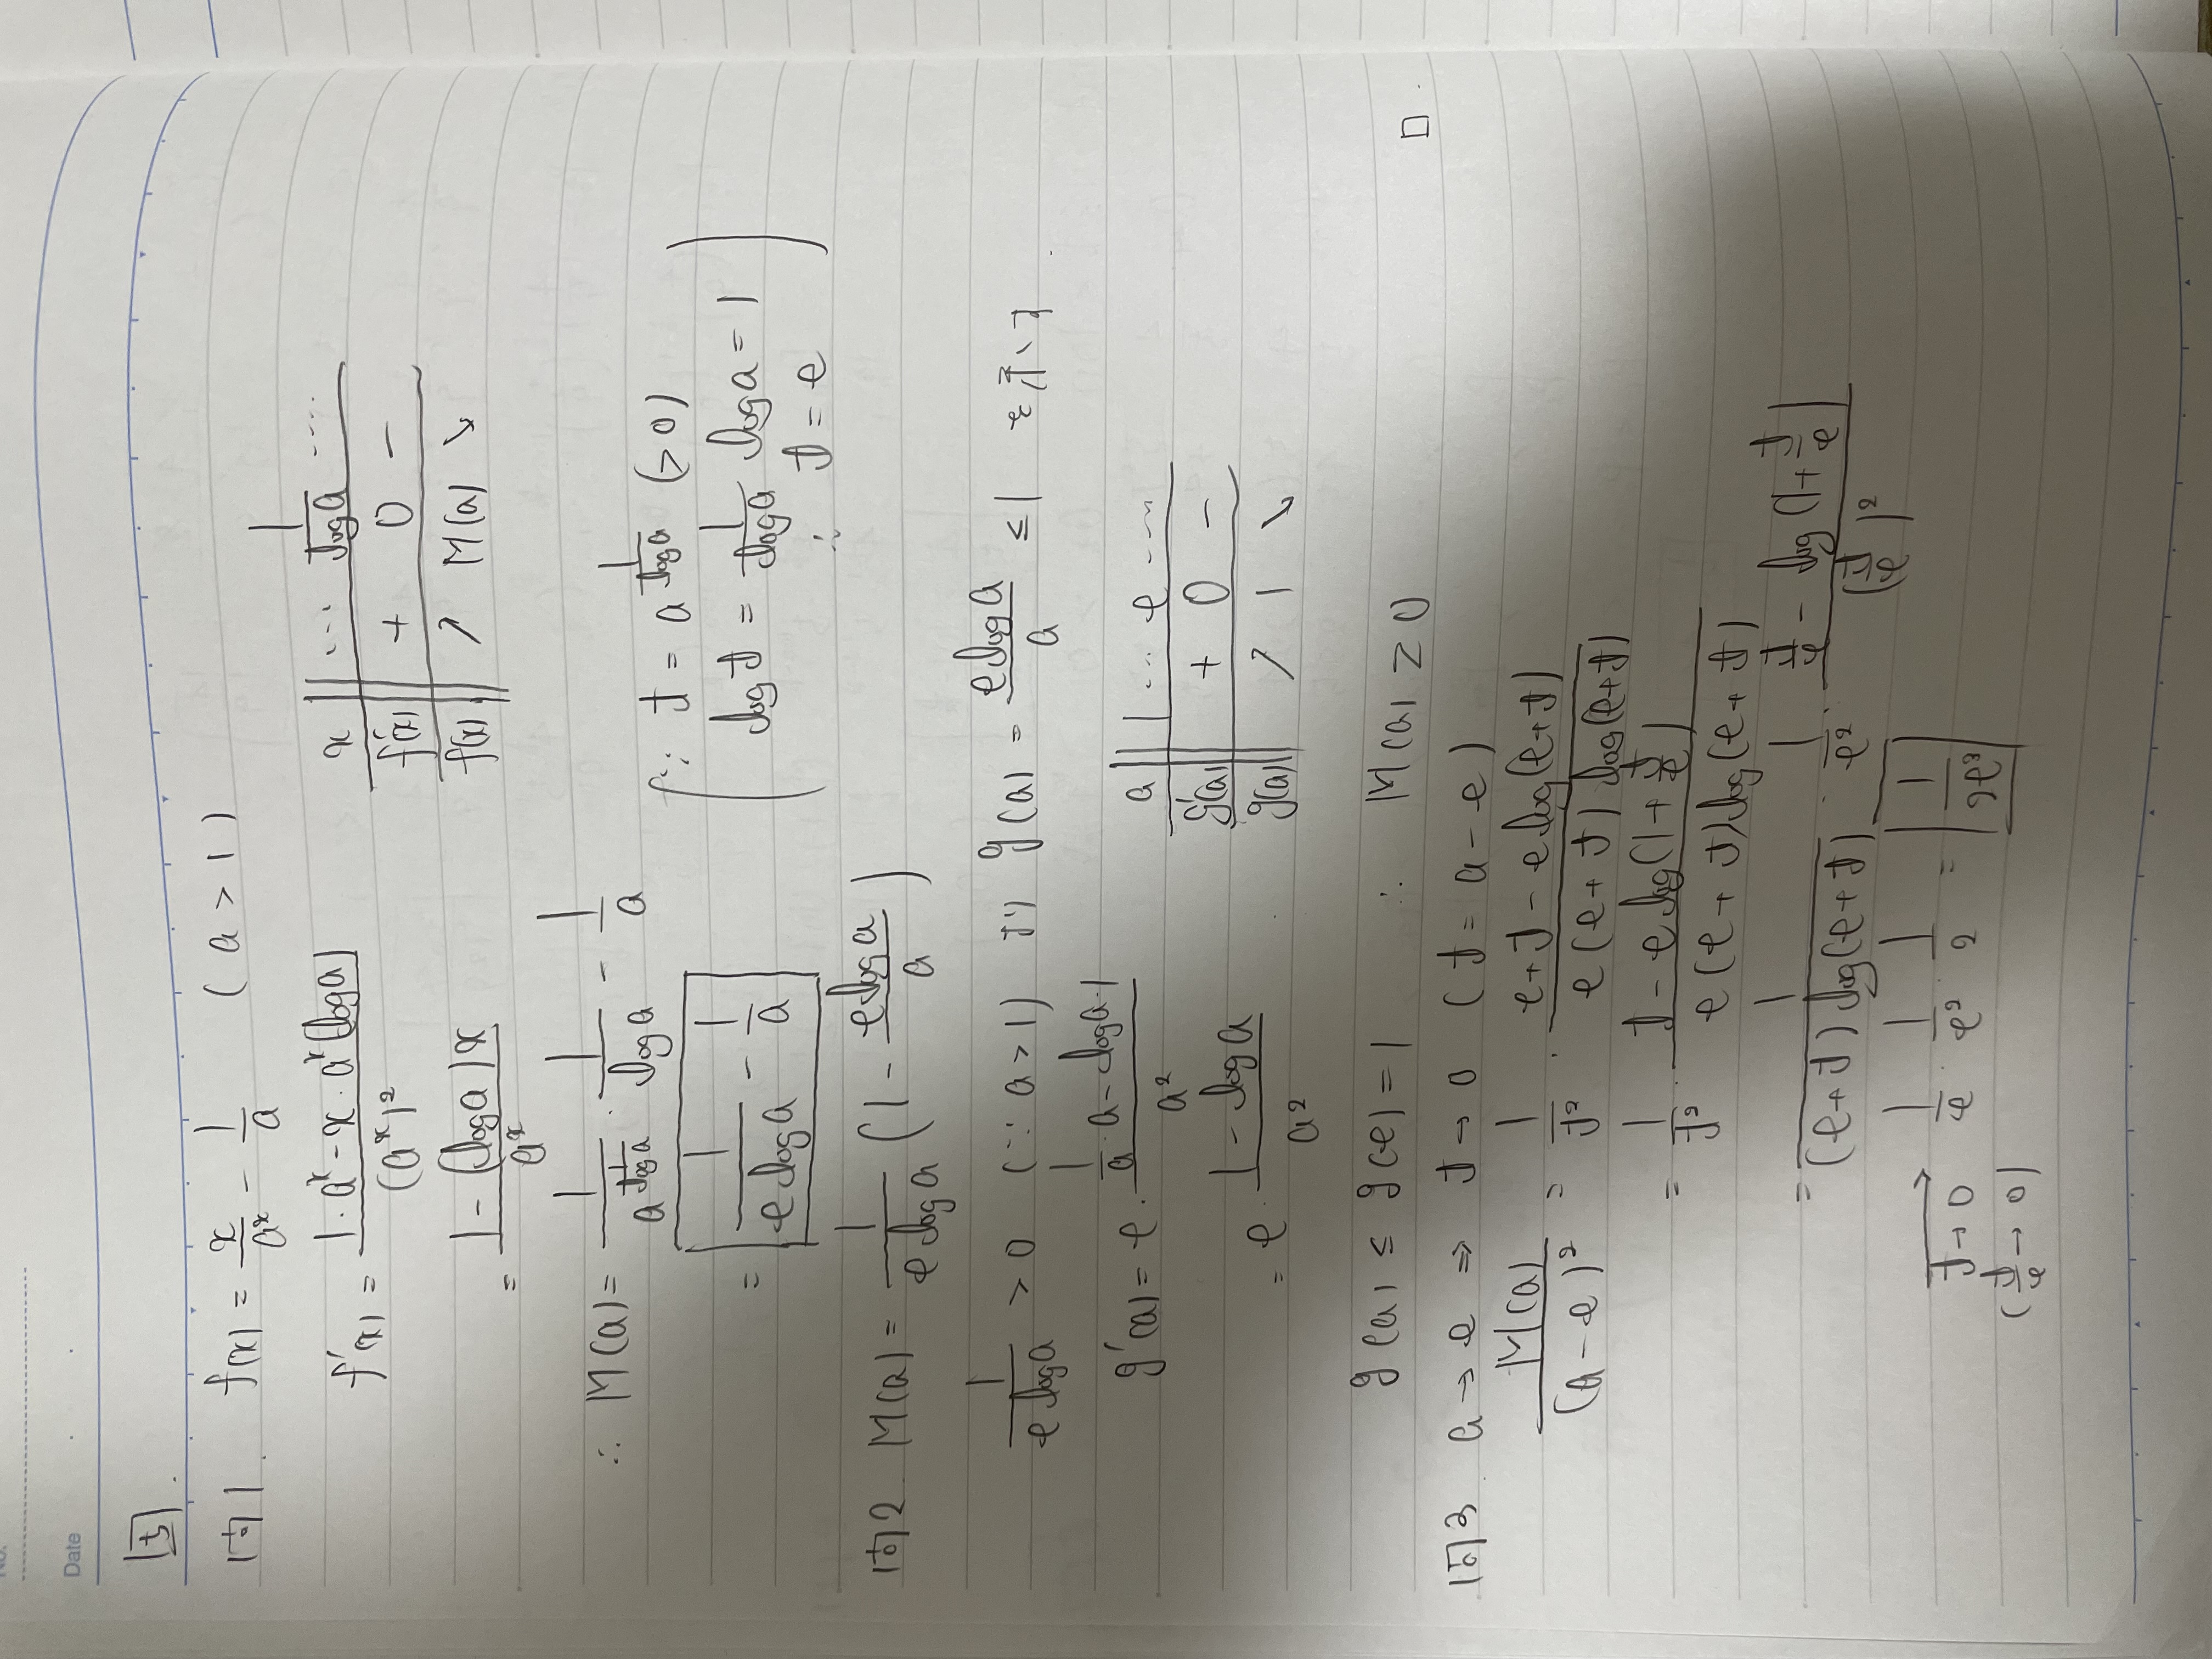 No.
Date
5
問1 f(x) = x/a^x - 1/a (a > 1)
f'(x) = (1・a^x - x・a^x(log a))/(a^x)^2
= (1 - (log a)x)/a^x
x | … 1/log a …
f'(x) | + 0 -
f(x) | ↗ M(a) ↘
∴ M(a) = 1/a^(1/log a)・1/log a - 1/a
= 1/(e log a) - 1/a
(∵ t = a^(1/log a) (> 0)
log t = 1/log a log a = 1
∴ t = e)
問2 M(a) = 1/(e log a) (1 - (e log a)/a)
1/(e log a) > 0 (∵ a > 1) より g(a) = (e log a)/a ≤ 1 を示す.
g'(a) = e・(1/a・a - log a・1)/a^2
= e・(1 - log a)/a^2
a | 1 … e …
g'(a) | + 0 -
g(a) | ↗ 1 ↘
g(a) ≤ g(e) = 1 ∴ M(a) ≥ 0 □
問3 a → e ⇒ t → 0 (t = a - e)
M(a)/(a - e)^2 = 1/t^2・(e + t - e log(e + t))/(e(e + t) log(e + t))
= 1/t^2・(t - e log(1 + t/e))/(e(e + t) log(e + t))
= 1/((e + t) log(e + t))・1/e^2・(t/e - log(1 + t/e))/(t/e)^2
→ t→0 (t/e → 0) 1/e・1/e^2・1/2 = 1/2e^3